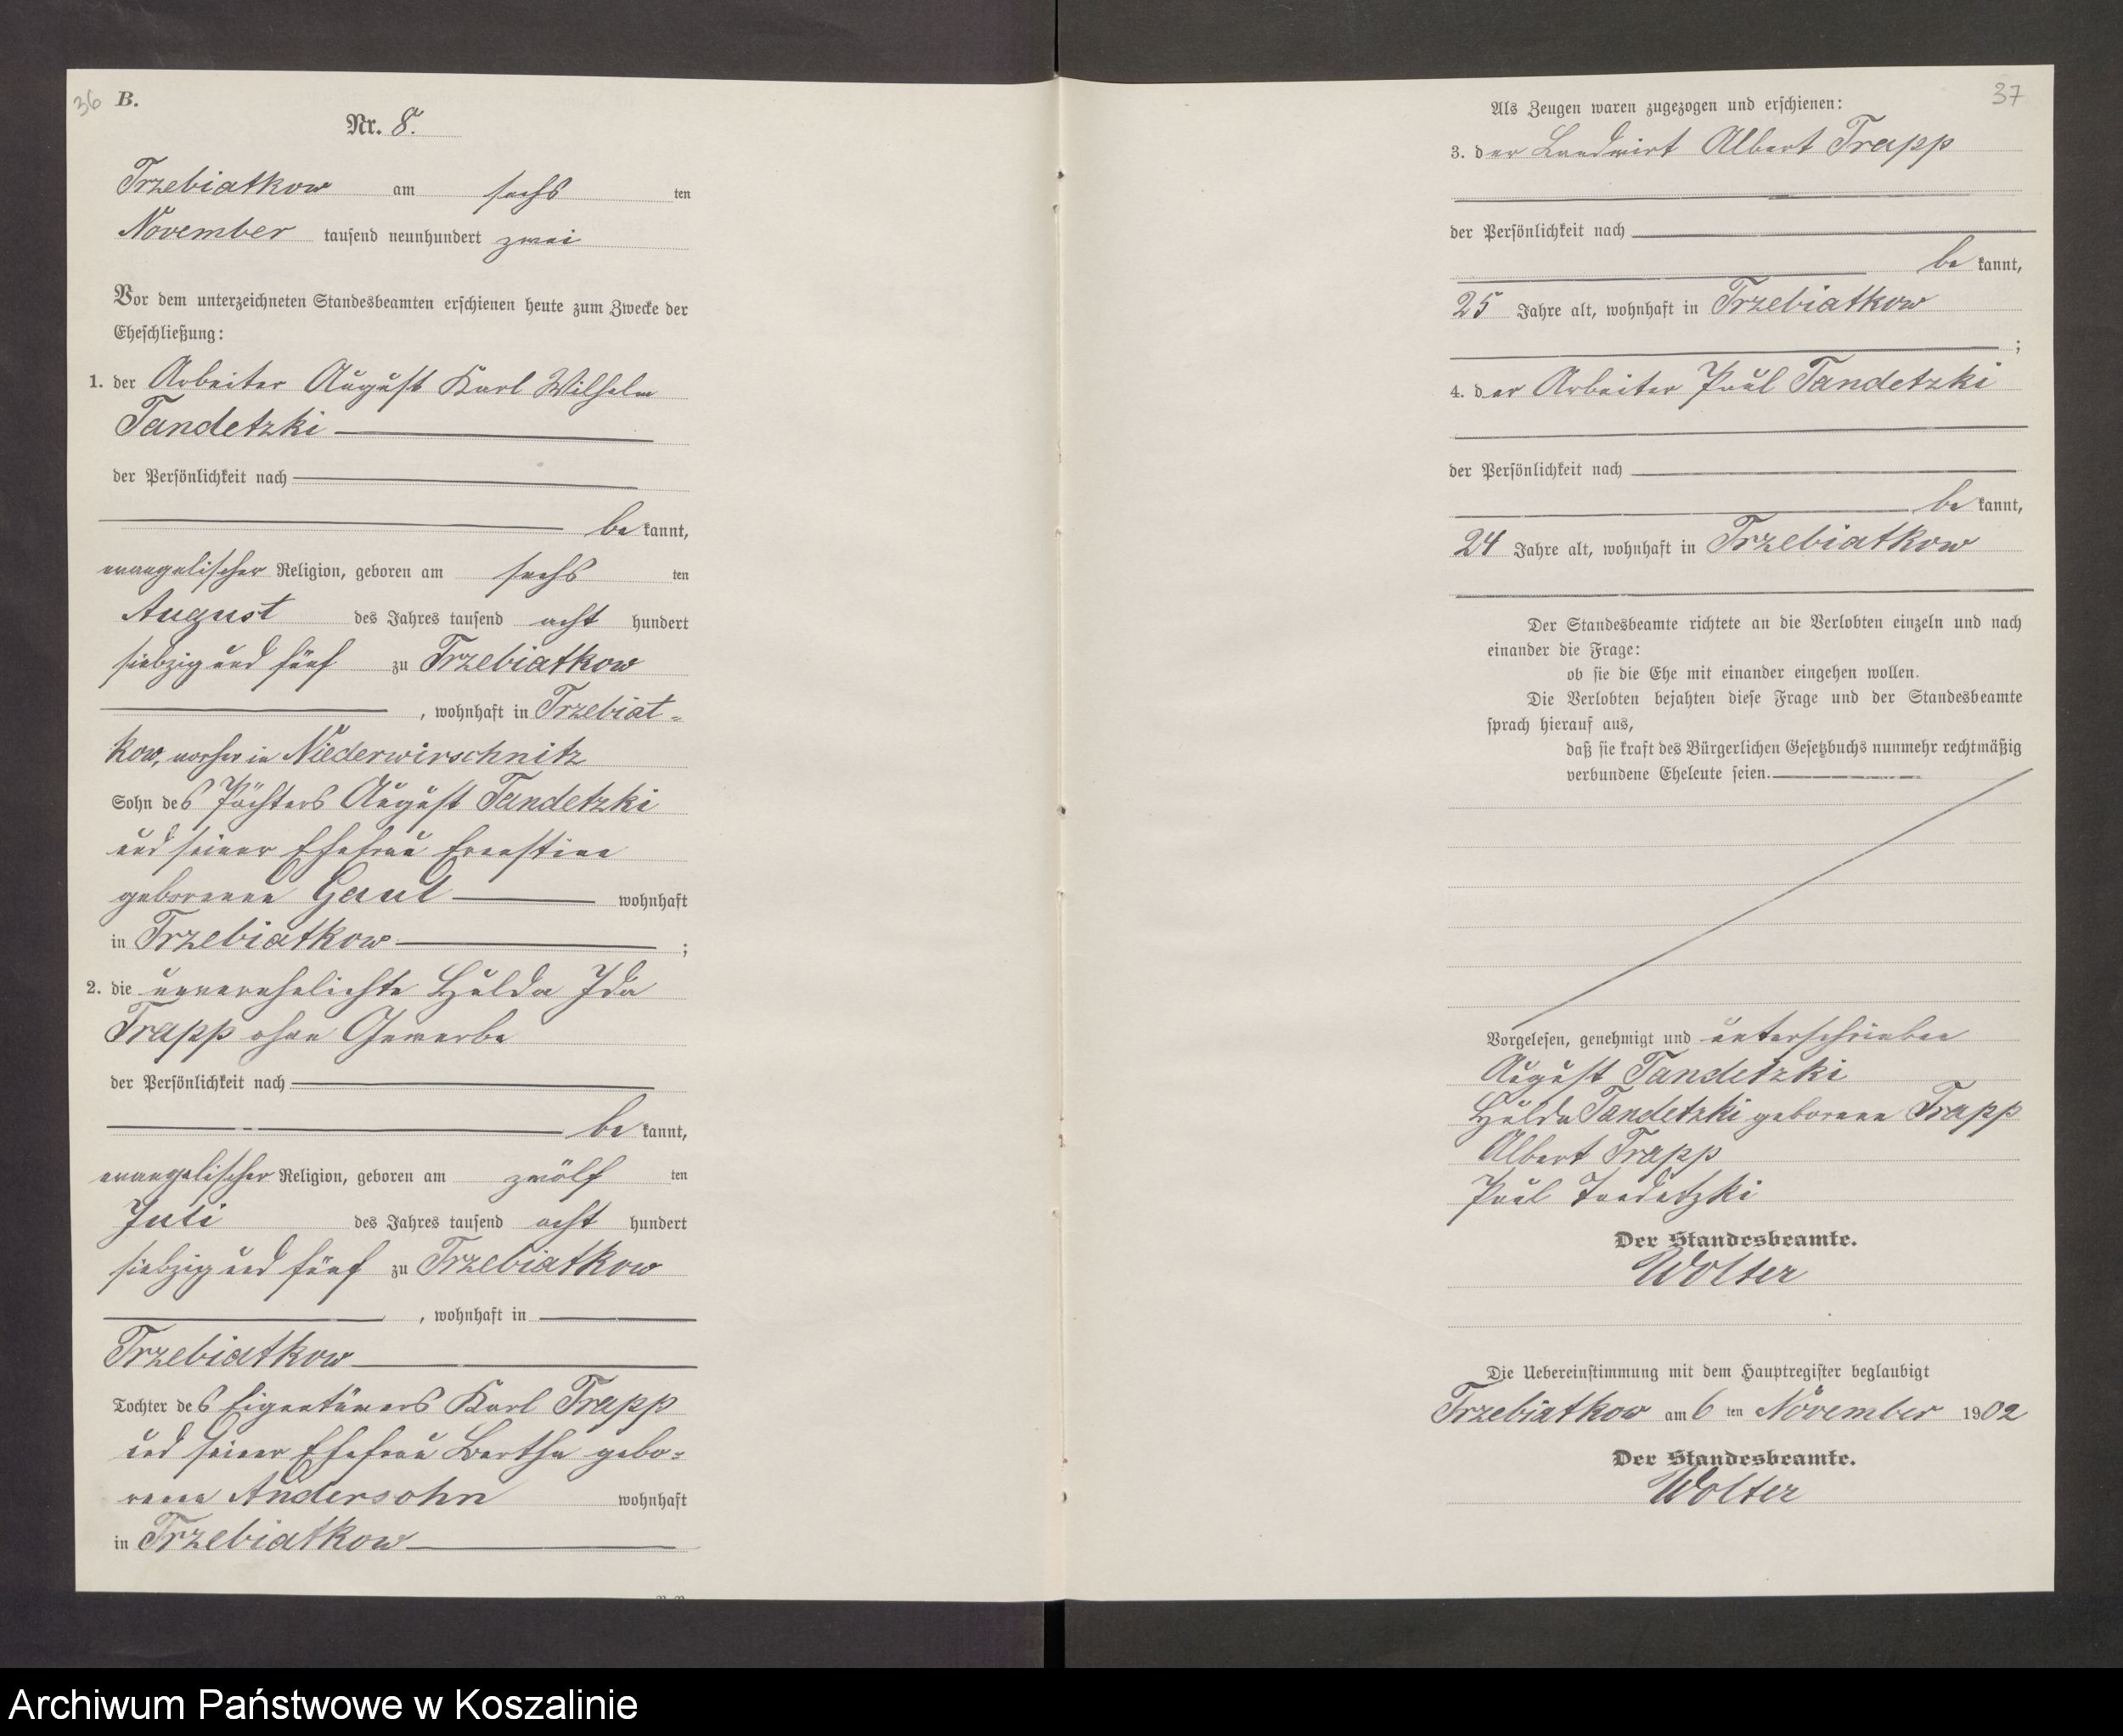 36
B.
Nr. 8.
Trzebiatkow am sechs ten
November tausend neunhundert zwei
Vor dem unterzeichneten Standesbeamten erschienen heute zum Zwecke der
Eheschließung:
1. der Arbeiter August Karl Wilhelm
Tandetzki
der Persönlichkeit nach
be kannt,
evangelischer Religion, geboren am sechs ten
August des Jahres tausend acht hundert
siebzig und fünf zu Trzebiatkow
, wohnhaft in Trzebiat-
kow, vorher in Niederwirschnitz
Sohn des Pächters August Tandetzki
und seiner Ehefrau Ernestine
geborenen Gaul wohnhaft
in Trzebiatkow ;
2. die unverehelichte Hulda Ida
Trapp ohne Gewerbe
der Persönlichkeit nach
be kannt,
evangelischer Religion, geboren am zwölf ten
Juli des Jahres tausend acht hundert
siebzig und fünf zu Trzebiatkow
, wohnhaft in
Trzebiatkow
Tochter des Eigentümers Karl Trapp
und seiner Ehefrau Bertha gebo-
rene Andersohn wohnhaft
in Trzebiatkow
37
Als Zeugen waren zugezogen und erschienen:
3. der Landwirt Albert Trapp
der Persönlichkeit nach
be kannt,
25 Jahre alt, wohnhaft in Trzebiatkow
;
4. der Arbeiter Paul Tandetzki
der Persönlichkeit nach
be kannt,
24 Jahre alt, wohnhaft in Trzebiatkow
Der Standesbeamte richtete an die Verlobten einzeln und nach
einander die Frage:
ob sie die Ehe mit einander eingehen wollen.
Die Verlobten bejahten diese Frage und der Standesbeamte
sprach hierauf aus,
daß sie kraft des Bürgerlichen Gesetzbuchs nunmehr rechtmäßig
verbundene Eheleute seien.
Vorgelesen, genehmigt und unterschrieben
August Tandetzki
Hulda Tandetzki geborene Trapp
Albert Trapp
Paul Tandetzki
Der Standesbeamte.
Wolter
Die Uebereinstimmung mit dem Hauptregister beglaubigt
Trzebiatkow am 6 ten November 1902
Der Standesbeamte.
Wolter
Archiwum Państwowe w Koszalinie